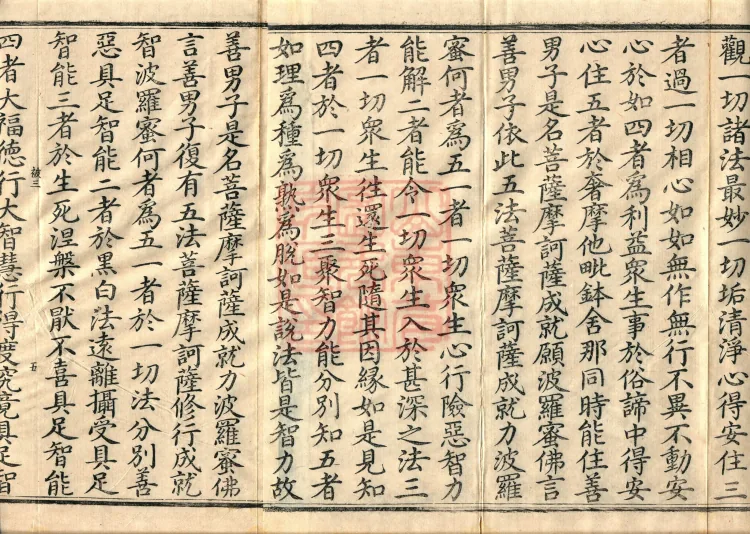 觀一切諸法最妙一切垢清淨心得安住三
者過一切相心如如無作無行不異不動安
心於如四者爲利益衆生事於俗諦中得安
心住五者於奢摩他毗鉢舍那同時能住善
男子是名菩薩摩訶薩成就願波羅蜜佛言
善男子依此五法菩薩摩訶薩成就力波羅
蜜何者爲五一者一切衆生心行險惡智力
能解二者能令一切衆生入於甚深之法三
者一切衆生往還生死隨其因緣如是見知
四者於一切衆生三聚智力能分別知五者
如理爲種爲熟爲脫如是說法皆是智力故
善男子是名菩薩摩訶薩成就力波羅蜜佛
言善男子復有五法菩薩摩訶薩修行成就
智波羅蜜何者爲五一者於一切法分別善
惡具足智能二者於黑白法遠離攝受具足
智能三者於生死涅槃不厭不喜具足智能
被三
五
四者大福德行大智慧行得度究竟具足智